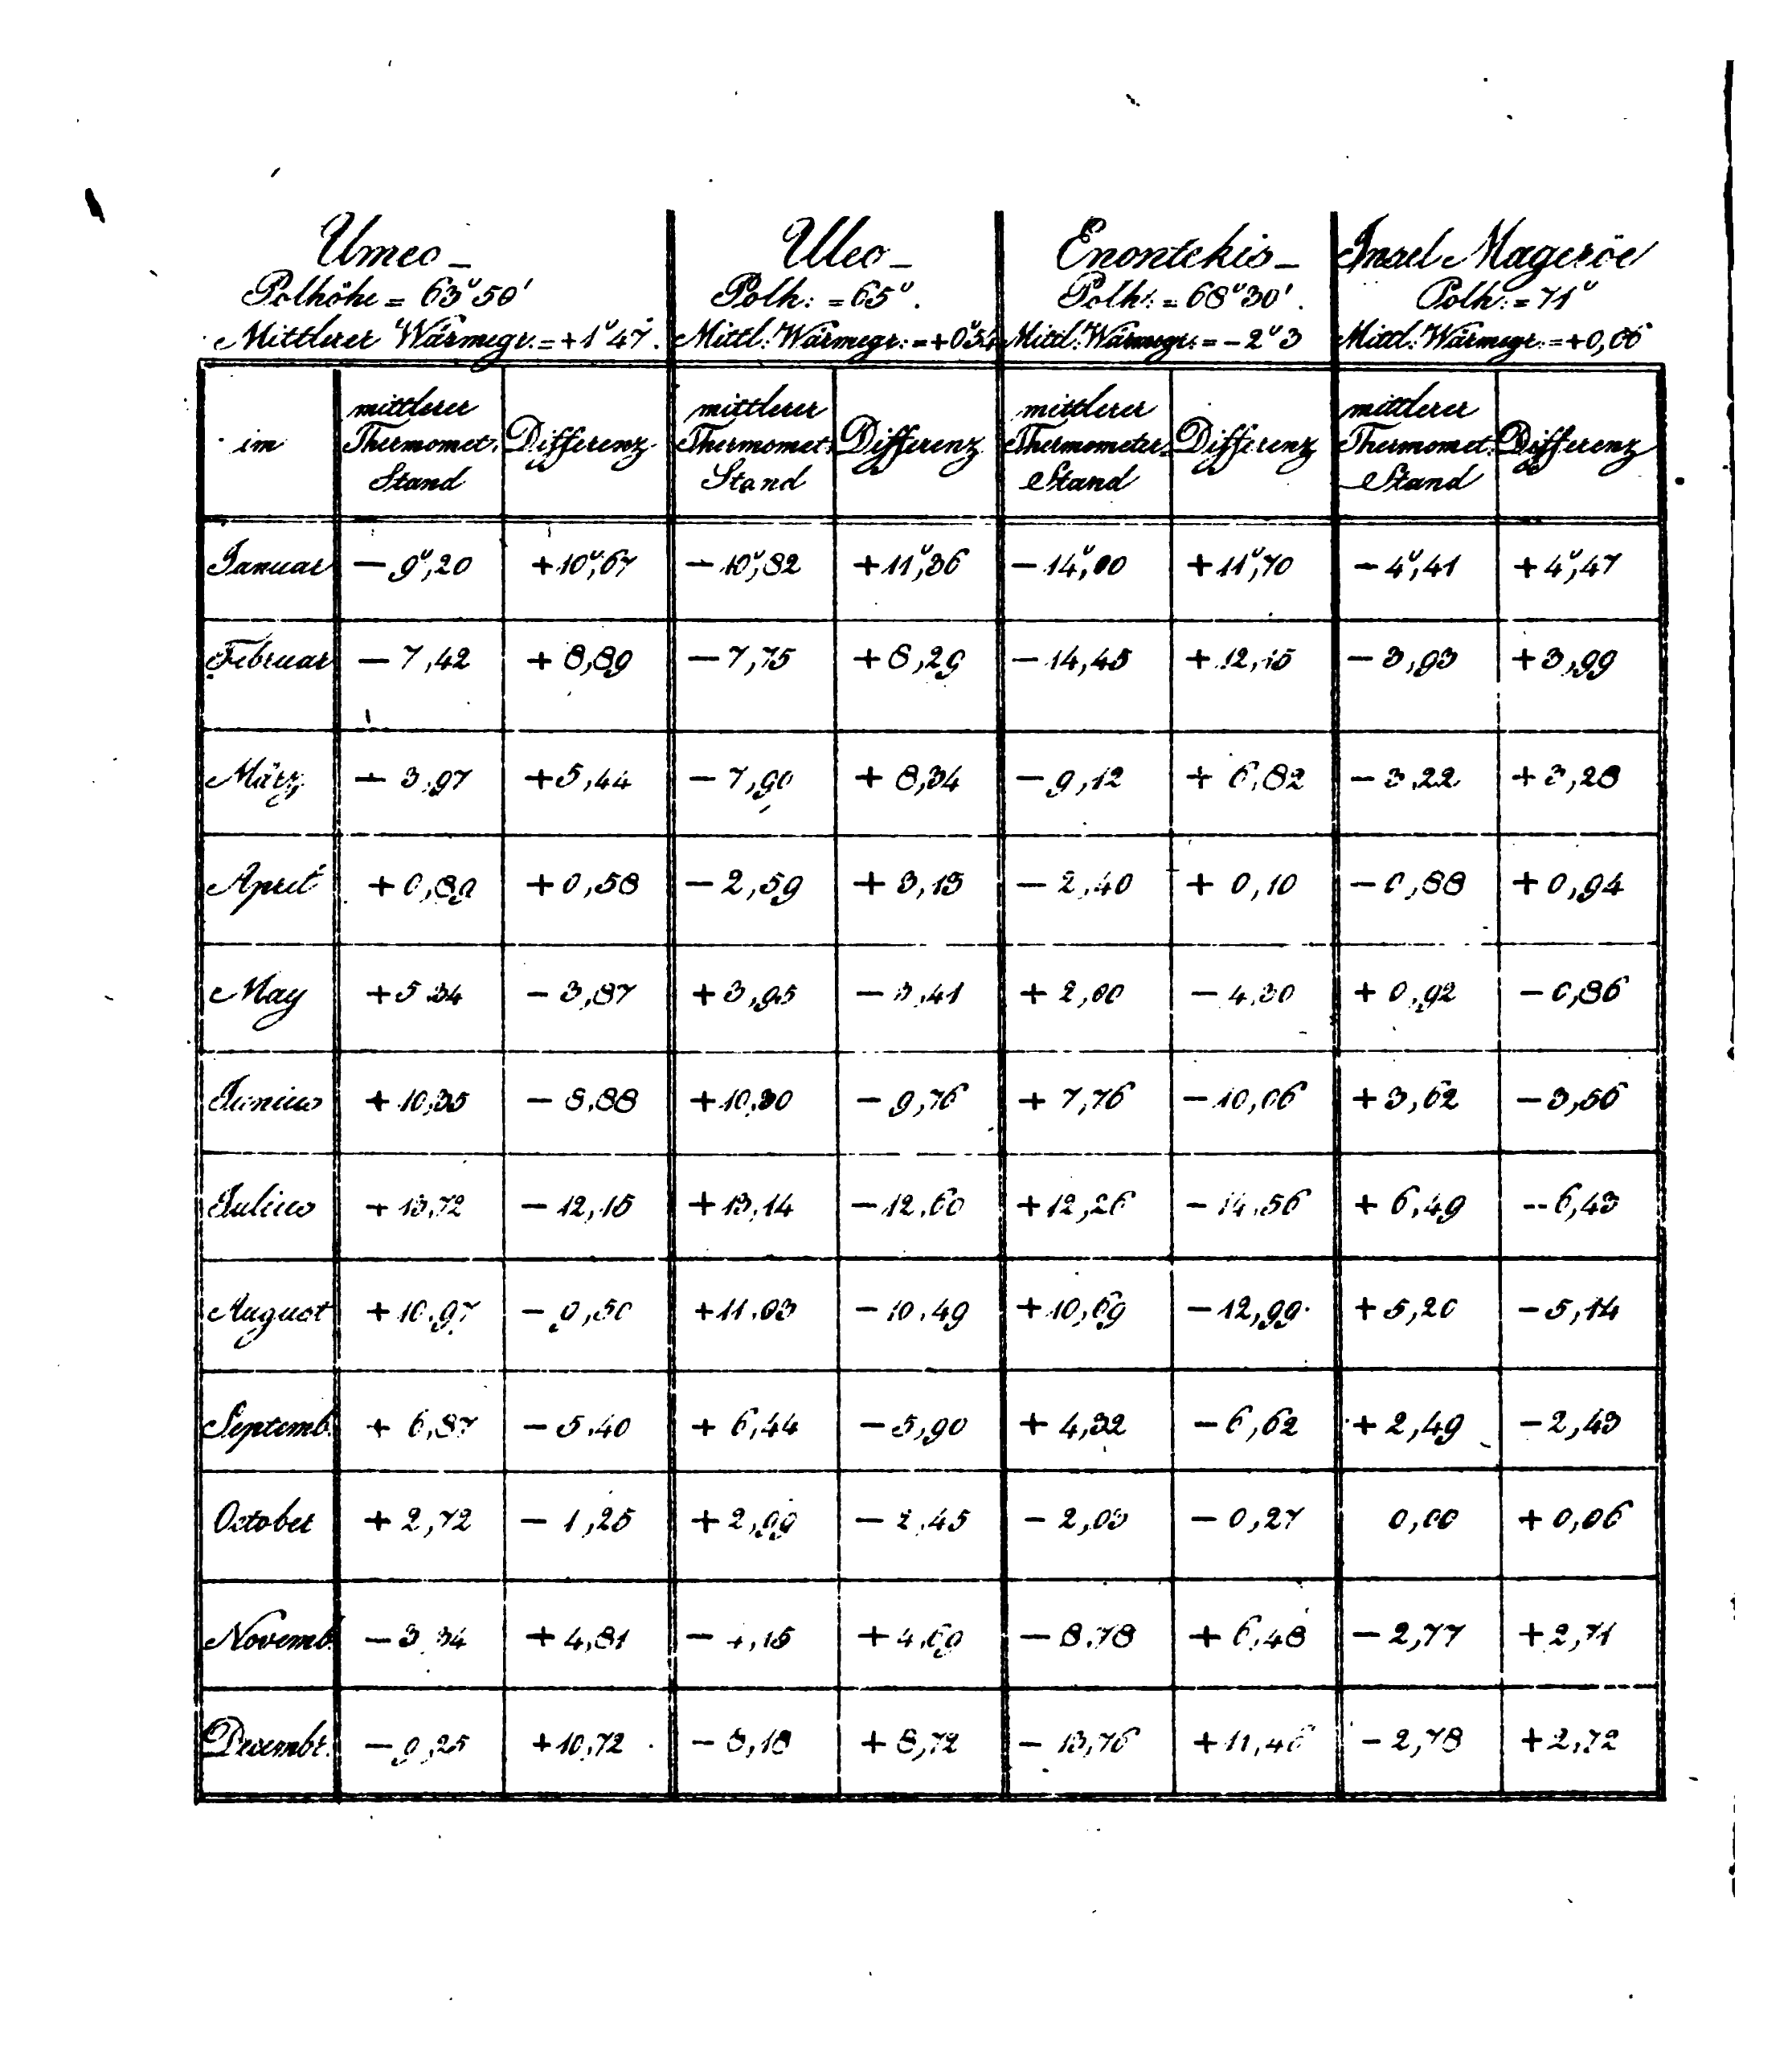 Umeo – Uleo – Enontekis – Insel Mageröe
Polhöhe = 63°50' Polh: = 65°. Polh: = 68°30'. Polh: = 71°
Mittlerer Wärmegr. = +1°47. Mittl: Wärmegr: = +0°54 Mittl: Wärmegr: = -2°3 Mittl: Wärmegr: = +0,06
im mittlerer Thermomet. Stand Differenz mittlerer Thermomet. Stand Differenz mittlerer Thermometer Stand Differenz mittlerer Thermomet. Stand Differenz
Januar – 9°,20 + 10°,67 – 10°,82 + 11°,36 – 14°,00 + 11°,70 – 4°,41 + 4°,47
Februar – 7,42 + 8,89 – 7,75 + 8,29 – 14,45 + 12,15 – 3,93 + 3,99
März – 3,97 + 5,44 – 7,90 + 8,34 – 9,12 + 6,82 – 3,22 + 3,28
April + 0,89 + 0,58 – 2,59 + 3,13 – 2,40 + 0,10 – 0,88 + 0,94
May + 5,34 – 3,87 + 3,95 – 3,41 + 2,00 – 4,30 + 0,92 – 0,86
Junius + 10,35 – 8,88 + 10,30 – 9,76 + 7,76 – 10,06 + 3,62 – 3,56
Julius + 13,72 – 12,15 + 13,14 – 12,60 + 12,26 – 14,56 + 6,49 – 6,43
August + 10,97 – 9,50 + 11,03 – 10,49 + 10,69 – 12,99 + 5,20 – 5,14
Septemb. + 6,87 – 5,40 + 6,44 – 5,90 + 4,32 – 6,62 + 2,49 – 2,43
October + 2,72 – 1,25 + 2,99 – 2,45 – 2,03 – 0,27 0,00 + 0,06
Novemb. – 3,34 + 4,81 – 4,15 + 4,69 – 8,78 + 6,48 – 2,77 + 2,71
Decembr. – 9,25 + 10,72 – 8,18 + 8,72 – 13,76 + 11,46 – 2,78 + 2,72